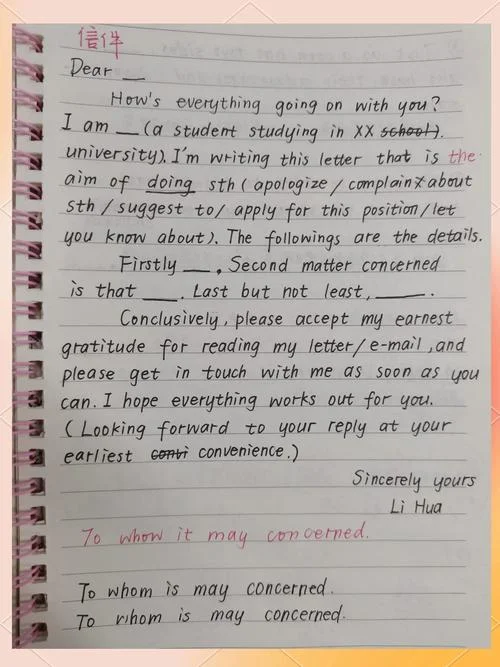 信件
Dear __
How's everything going on with you?
I am __ (a student studying in XX school).
university). I'm writing this letter that is the
aim of doing sth (apologize / complain about
sth / suggest to / apply for this position / let
you know about). The followings are the details.
Firstly __. Second matter concerned
is that ___. Last but not least, ____.
Conclusively, please accept my earnest
gratitude for reading my letter / e-mail, and
please get in touch with me as soon as you
can. I hope everything works out for you.
(Looking forward to your reply at your
earliest convi convenience.)
Sincerely yours
Li Hua
To whom it may concerned.
To whom is may concerned.
To whom is may concerned.